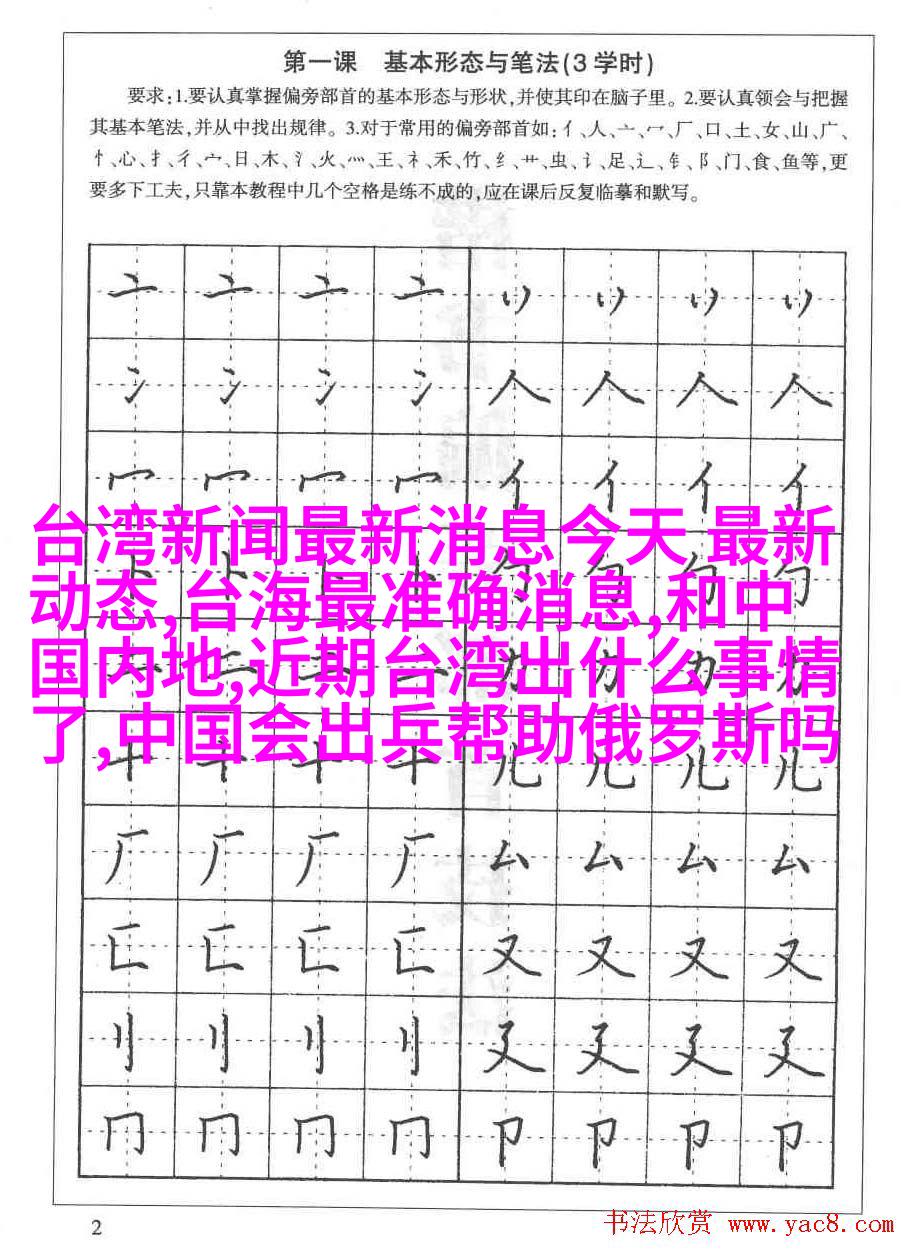 第一课 基本形态与笔法(3学时)
要求:1.要认真掌握偏旁部首的基本形态与形状,并使其印在脑子里。2.要认真领会与把握
其基本笔法,并从中找出规律。3.对于常用的偏旁部首如:亻、人、亠、冖、厂、口、土、女、山、广、
忄、心、扌、彳、宀、日、木、氵、火、灬、王、礻、禾、竹、纟、艹、虫、讠、足、辶、钅、阝、门、食、鱼等,更
要多下工夫,只靠本教程中几个空格是练不成的,应在课后反复临摹和默写。
亠 亠 亠 亠 丷 丷 丷 丷
冫 冫 冫 冫 人 人 人 人
冖 冖 冖 冖 亻 亻 亻 亻
台湾新闻最新消息今天 最新
动态,台海最准确消息,和中
国内地,近期台湾出什么事情
了,中国会出兵帮助俄罗斯吗
十 十 十 十 儿 儿 儿 儿
厂 厂 厂 厂 厶 厶 厶 厶
匚 匚 匚 匚 又 又 又 又
刂 刂 刂 刂 廴 廴 廴 廴
冂 冂 冂 冂 卩 卩 卩 卩
2
书法欣赏 www.yac8.com